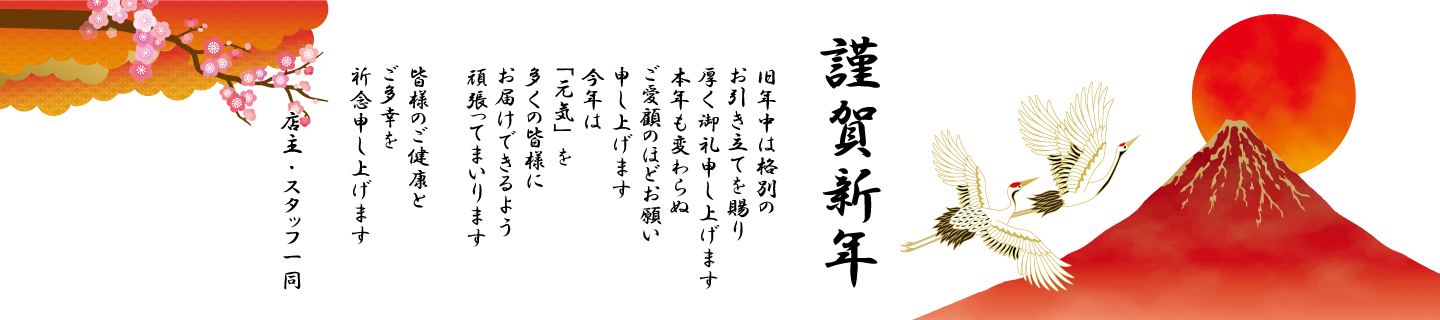 謹賀新年
旧年中は格別の
お引き立てを賜り
厚く御礼申し上げます
本年も変わらぬ
ご愛顧のほどお願い
申し上げます
今年は
「元気」を
多くの皆様に
お届けできるよう
頑張ってまいります
皆様のご健康と
ご多幸を
祈念申し上げます
店主・スタッフ一同